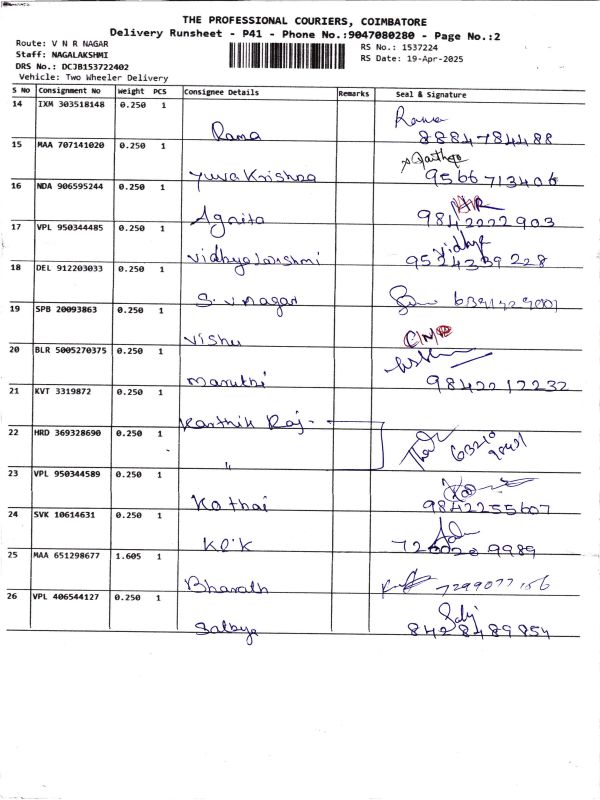 THE PROFESSIONAL COURIERS, COIMBATORE
Delivery Runsheet - P41 - Phone No.:9047080280 - Page No.:2
Route: V N R NAGAR
Staff: NAGALAKSHMI
DRS No.: DCJB153722402
Vehicle: Two Wheeler Delivery
RS No.: 1537224
RS Date: 19-Apr-2025
S No Consignment No Weight PCS Consignee Details Remarks Seal & Signature
14 IXM 303518148 0.250 1
Rama Rama 8884784488
15 MAA 707141020 0.250 1
Yuva Krishna 9566713406
16 NDA 906595244 0.250 1
Agaita 9842022903
17 VPL 950344485 0.250 1
Vidhya lakshmi Vidhya 9524339228
18 DEL 912203033 0.250 1
S. V nagar
19 SPB 20093863 0.250 1
Vishu
20 BLR 5005270375 0.250 1
Maruthi 9842212232
21 KVT 3319872 0.250 1
Karthik Raj -
22 HRD 369328690 0.250 1
"
23 VPL 950344589 0.250 1
Kothai 9842255607
24 SVK 10614631 0.250 1
K.P.K
25 MAA 651298677 1.605 1
Bharath
26 VPL 406544127 0.250 1
Satbya 8428489854